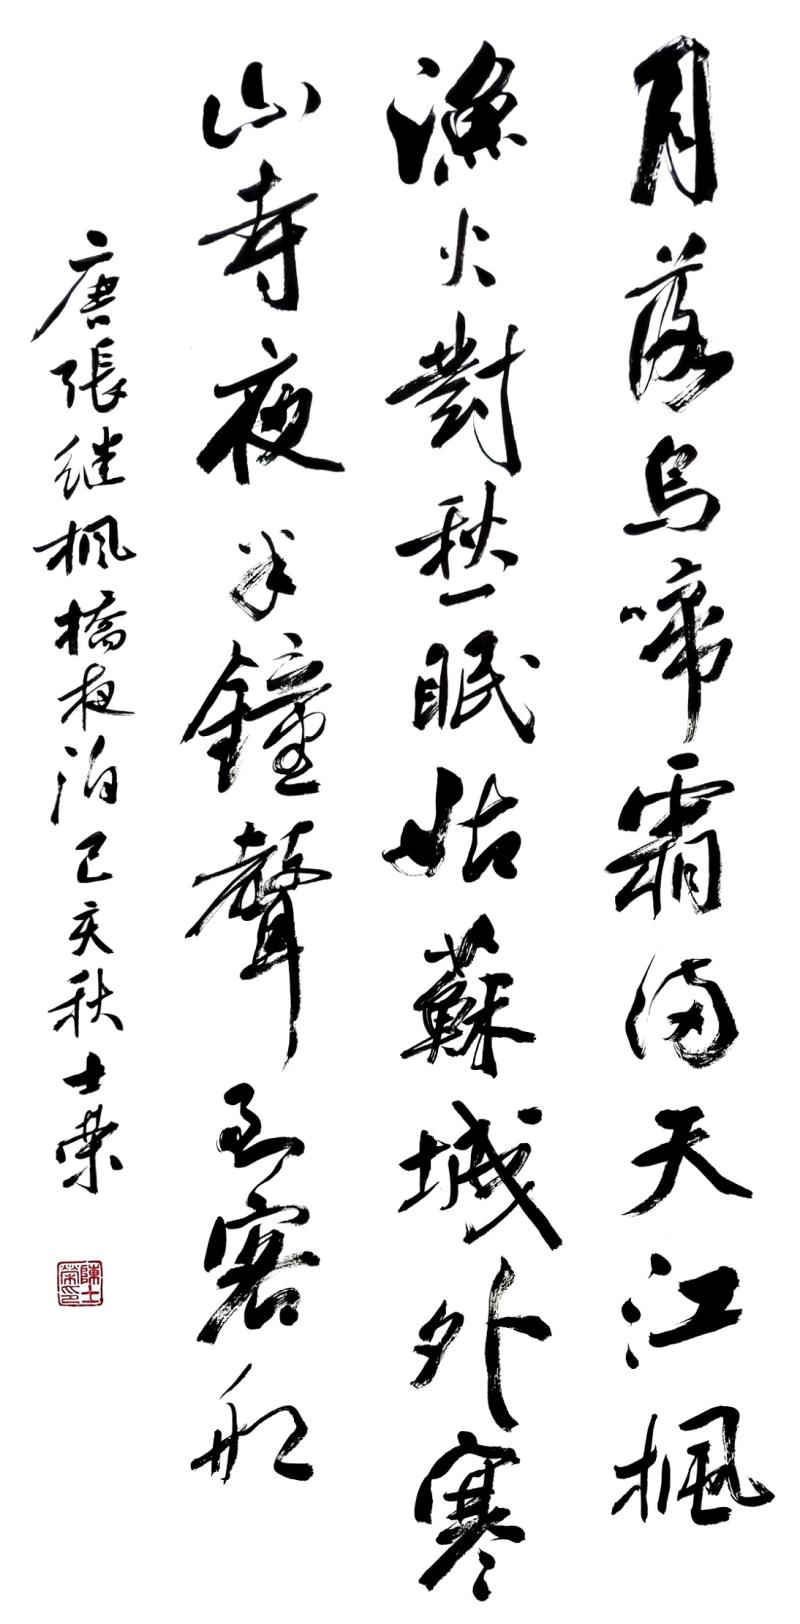 月落烏啼霜满天江楓
漁火對愁眠姑蘇城外寒
山寺夜半鐘聲到客船
唐張继楓橋夜泊己亥秋士荣
陳士榮印